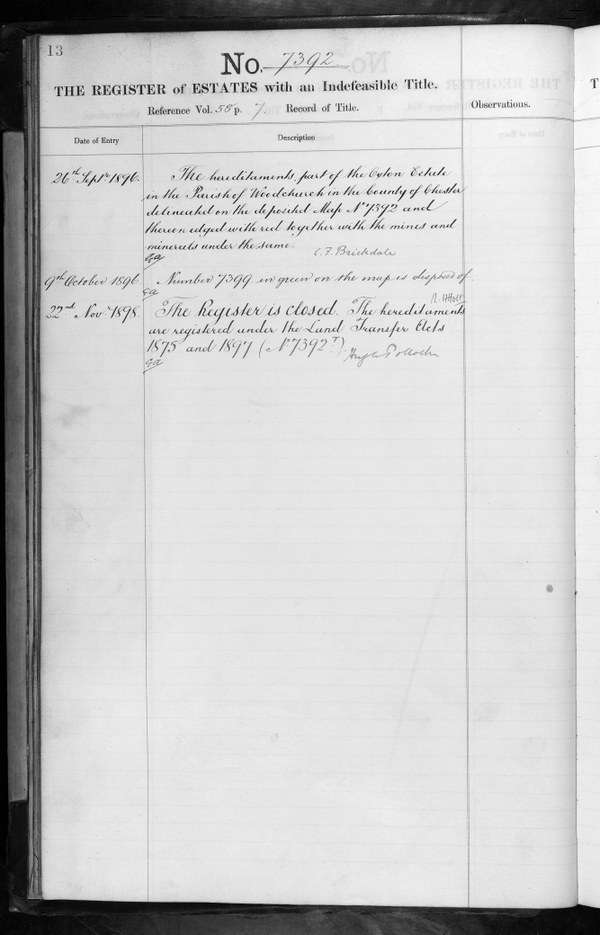 13
No. 7392
THE REGISTER of ESTATES with an Indefeasible Title.
Reference Vol. 58 p. 7. Record of Title.
Observations.
Date of Entry
Description
26th Septr 1896.
The hereditaments, part of the Oxton Estate
in the Parish of Woodchurch in the County of Chester
delineated on the deposited Map No 7392 and
thereon edged with red together with the mines and
minerals under the same.
C. F. Brickdale
9th October 1896
Number 7399 in green on the map is disposed of
R. H. Holt
22nd Novr 1898
The Register is closed. The hereditaments
are registered under the Land Transfer Acts
1875 and 1897 (No 7392T).
Hugh Pollock